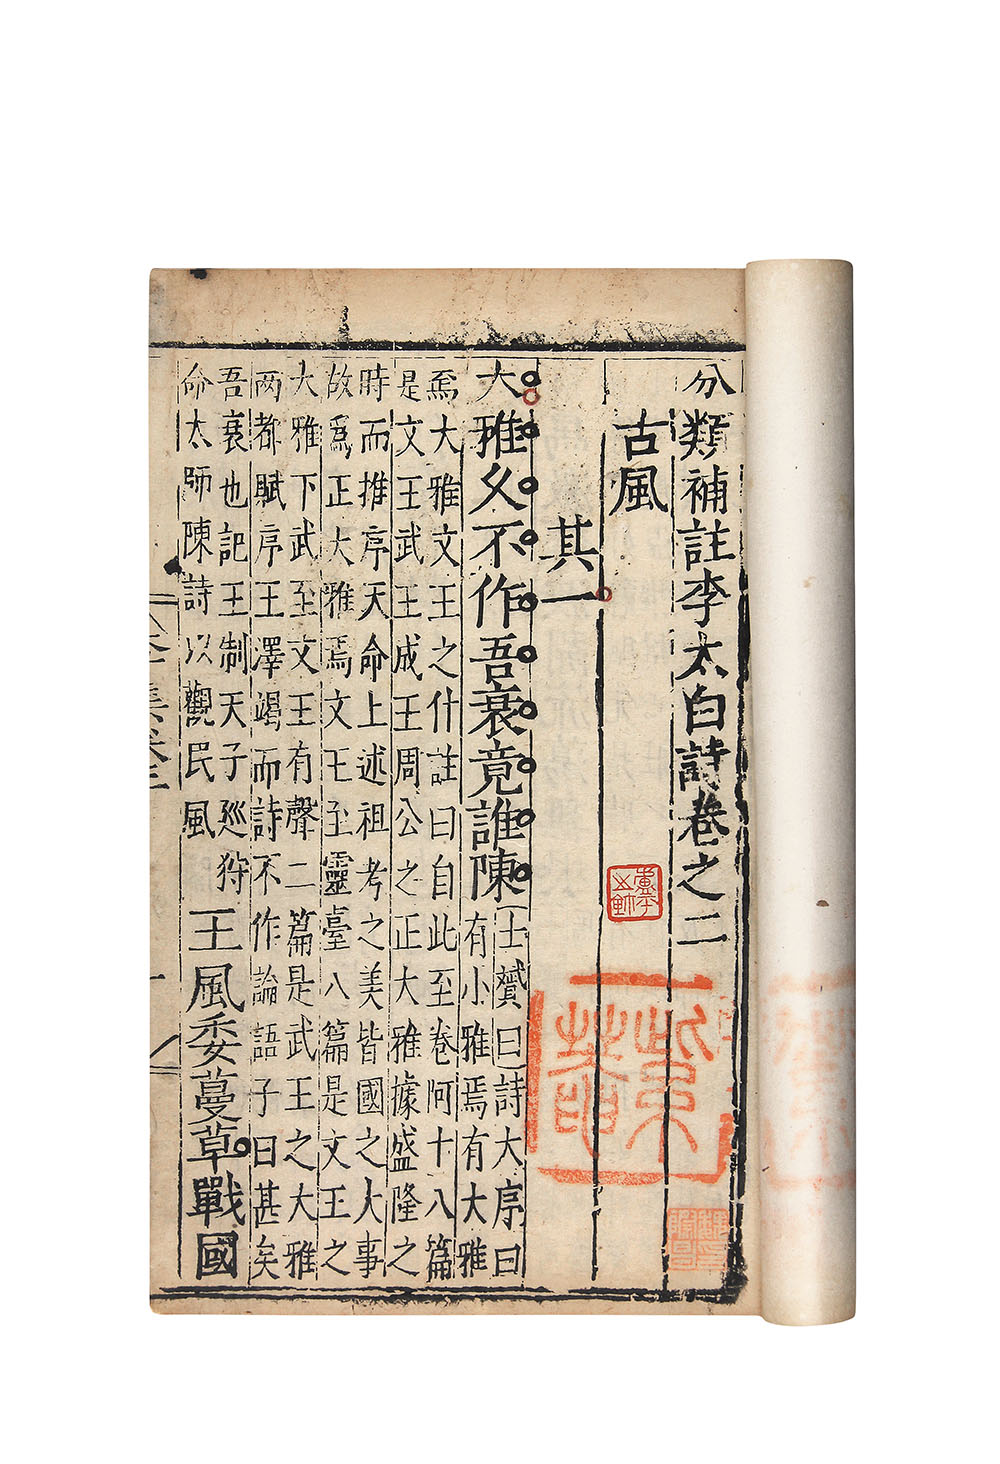 分類補註李太白詩卷之二
古風
其一
大雅久不作吾衰竟誰陳
士贇曰詩大序曰
有小雅焉有大雅
焉大雅文王之什註曰自此至卷阿十八篇
是文王武王成王周公之正大雅據盛隆之
時而推序天命上述祖考之美皆國之大事
故爲正大雅焉文王至靈臺八篇是文王之
大雅下武至文王有聲二篇是武王之大雅
兩都賦序王澤竭而詩不作論語子曰甚矣
吾衰也記王制天子廵狩
命太師陳詩以觀民風
王風委蔓草戰國